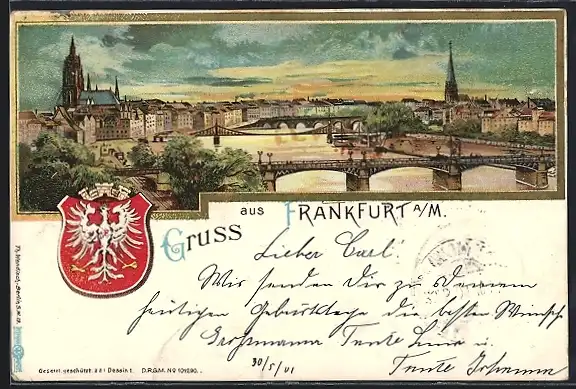 Gruss
aus FRANKFURT A/M.
Lieber Carl!
Wir senden Dir zu Deinem
heutigen Geburtstage die besten Wünsche
Grossmama Tante Lina u.
Tante Johanna
30/5/01
Gesetzl. geschützt
D.R.G.M. No